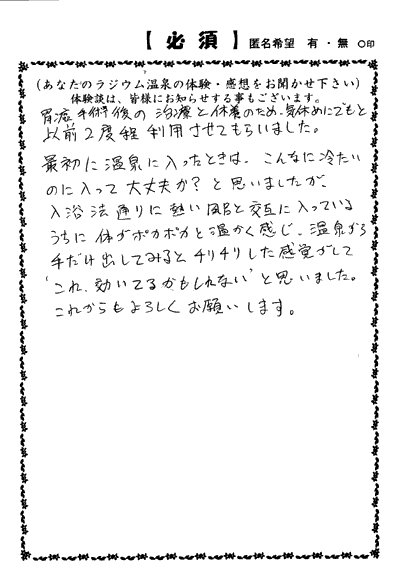 【 必 須 】 匿名希望 有 ・ 無 ○印
(あなたのラジウム温泉の体験・感想をお聞かせ下さい)
体験談は、皆様にお知らせする事もございます。
胃癌手術後の治療と休養のため、気休めにでもと
以前2度程利用させてもらいました。
最初に温泉に入ったときは、こんなに冷たい
のに入って大丈夫か?と思いましたが、
入浴法通りに熱い風呂と交互に入っている
うちに体がポカポカと温かく感じ、温泉から
手だけ出してみるとチリチリした感覚がして
"これ、効いてるかもしれない"と思いました。
これからもよろしくお願いします。